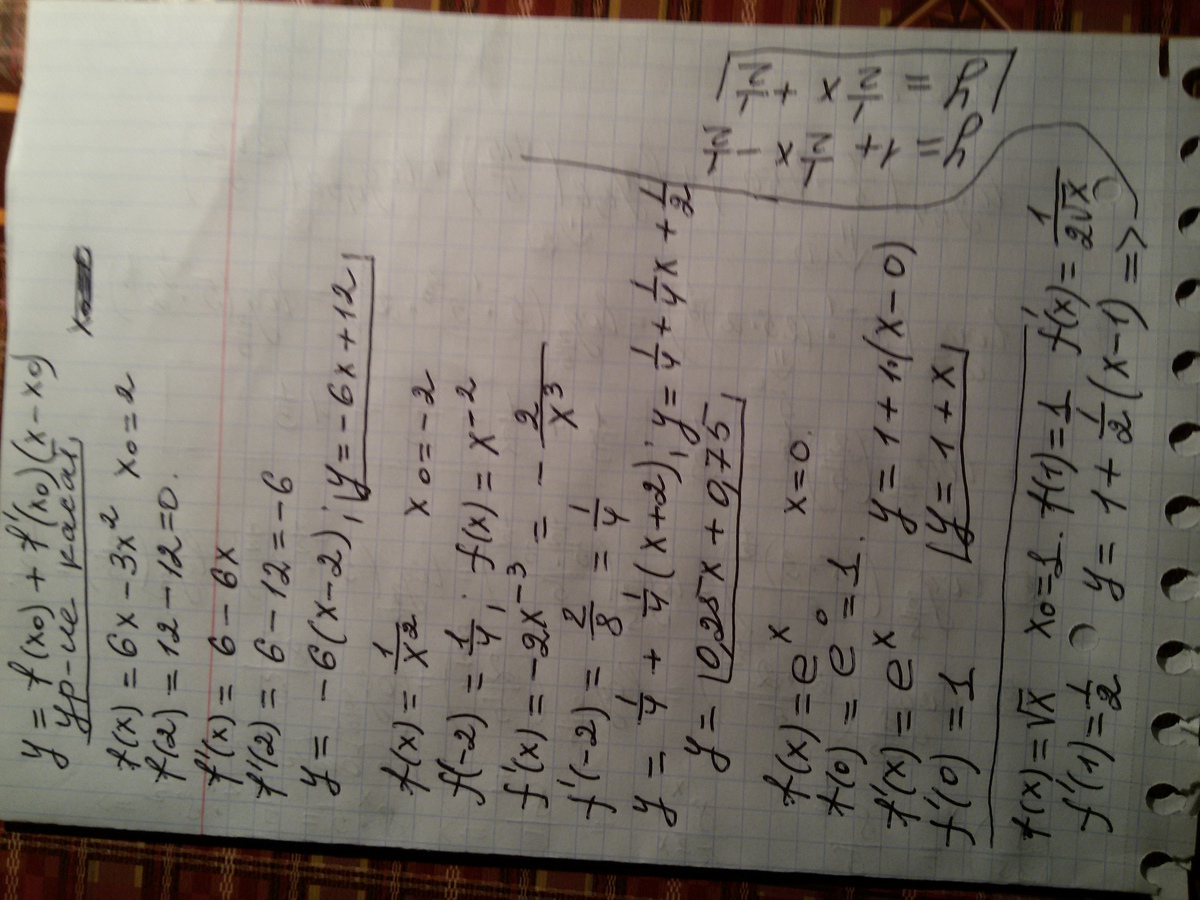 y = f(x0) + f'(x0)(x - x0)
ур-ие касат.
f(x) = 6x - 3x² x0 = 2
f(2) = 12 - 12 = 0.
f'(x) = 6 - 6x
f'(2) = 6 - 12 = -6
y = -6(x-2); y = -6x + 12
f(x) = 1/x² x0 = -2
f(-2) = 1/4; f(x) = x⁻²
f'(x) = -2x⁻³ = -2/x³
f'(-2) = 2/8 = 1/4
y = 1/4 + 1/4(x+2); y = 1/4 + 1/4x + 1/2
y = 0,25x + 0,75
f(x) = eˣ x = 0.
f(0) = e⁰ = 1.
f'(x) = eˣ y = 1 + 1·(x - 0)
f'(0) = 1 y = 1 + x
f(x) = √x x0 = 1. f(1) = 1 f'(x) = 1/(2√x)
f'(1) = 1/2 y = 1 + 1/2(x-1) =>
y = 1 + 1/2x - 1/2
y = 1/2x + 1/2